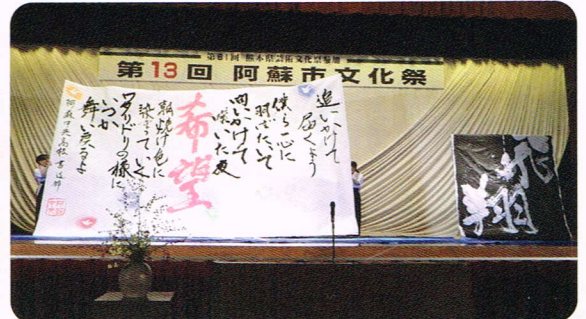 第61回 熊本県芸術文化祭参加
第13回 阿蘇市文化祭
追いかけて
届くよう
僕ら一心に
羽ばたいて
問いかけて
嘆いた夜
希望
朝焼け色に
染まっていく
ワタリドリの様に
いつか
舞い戻るよ
阿蘇中央高校 書道部
飛翔